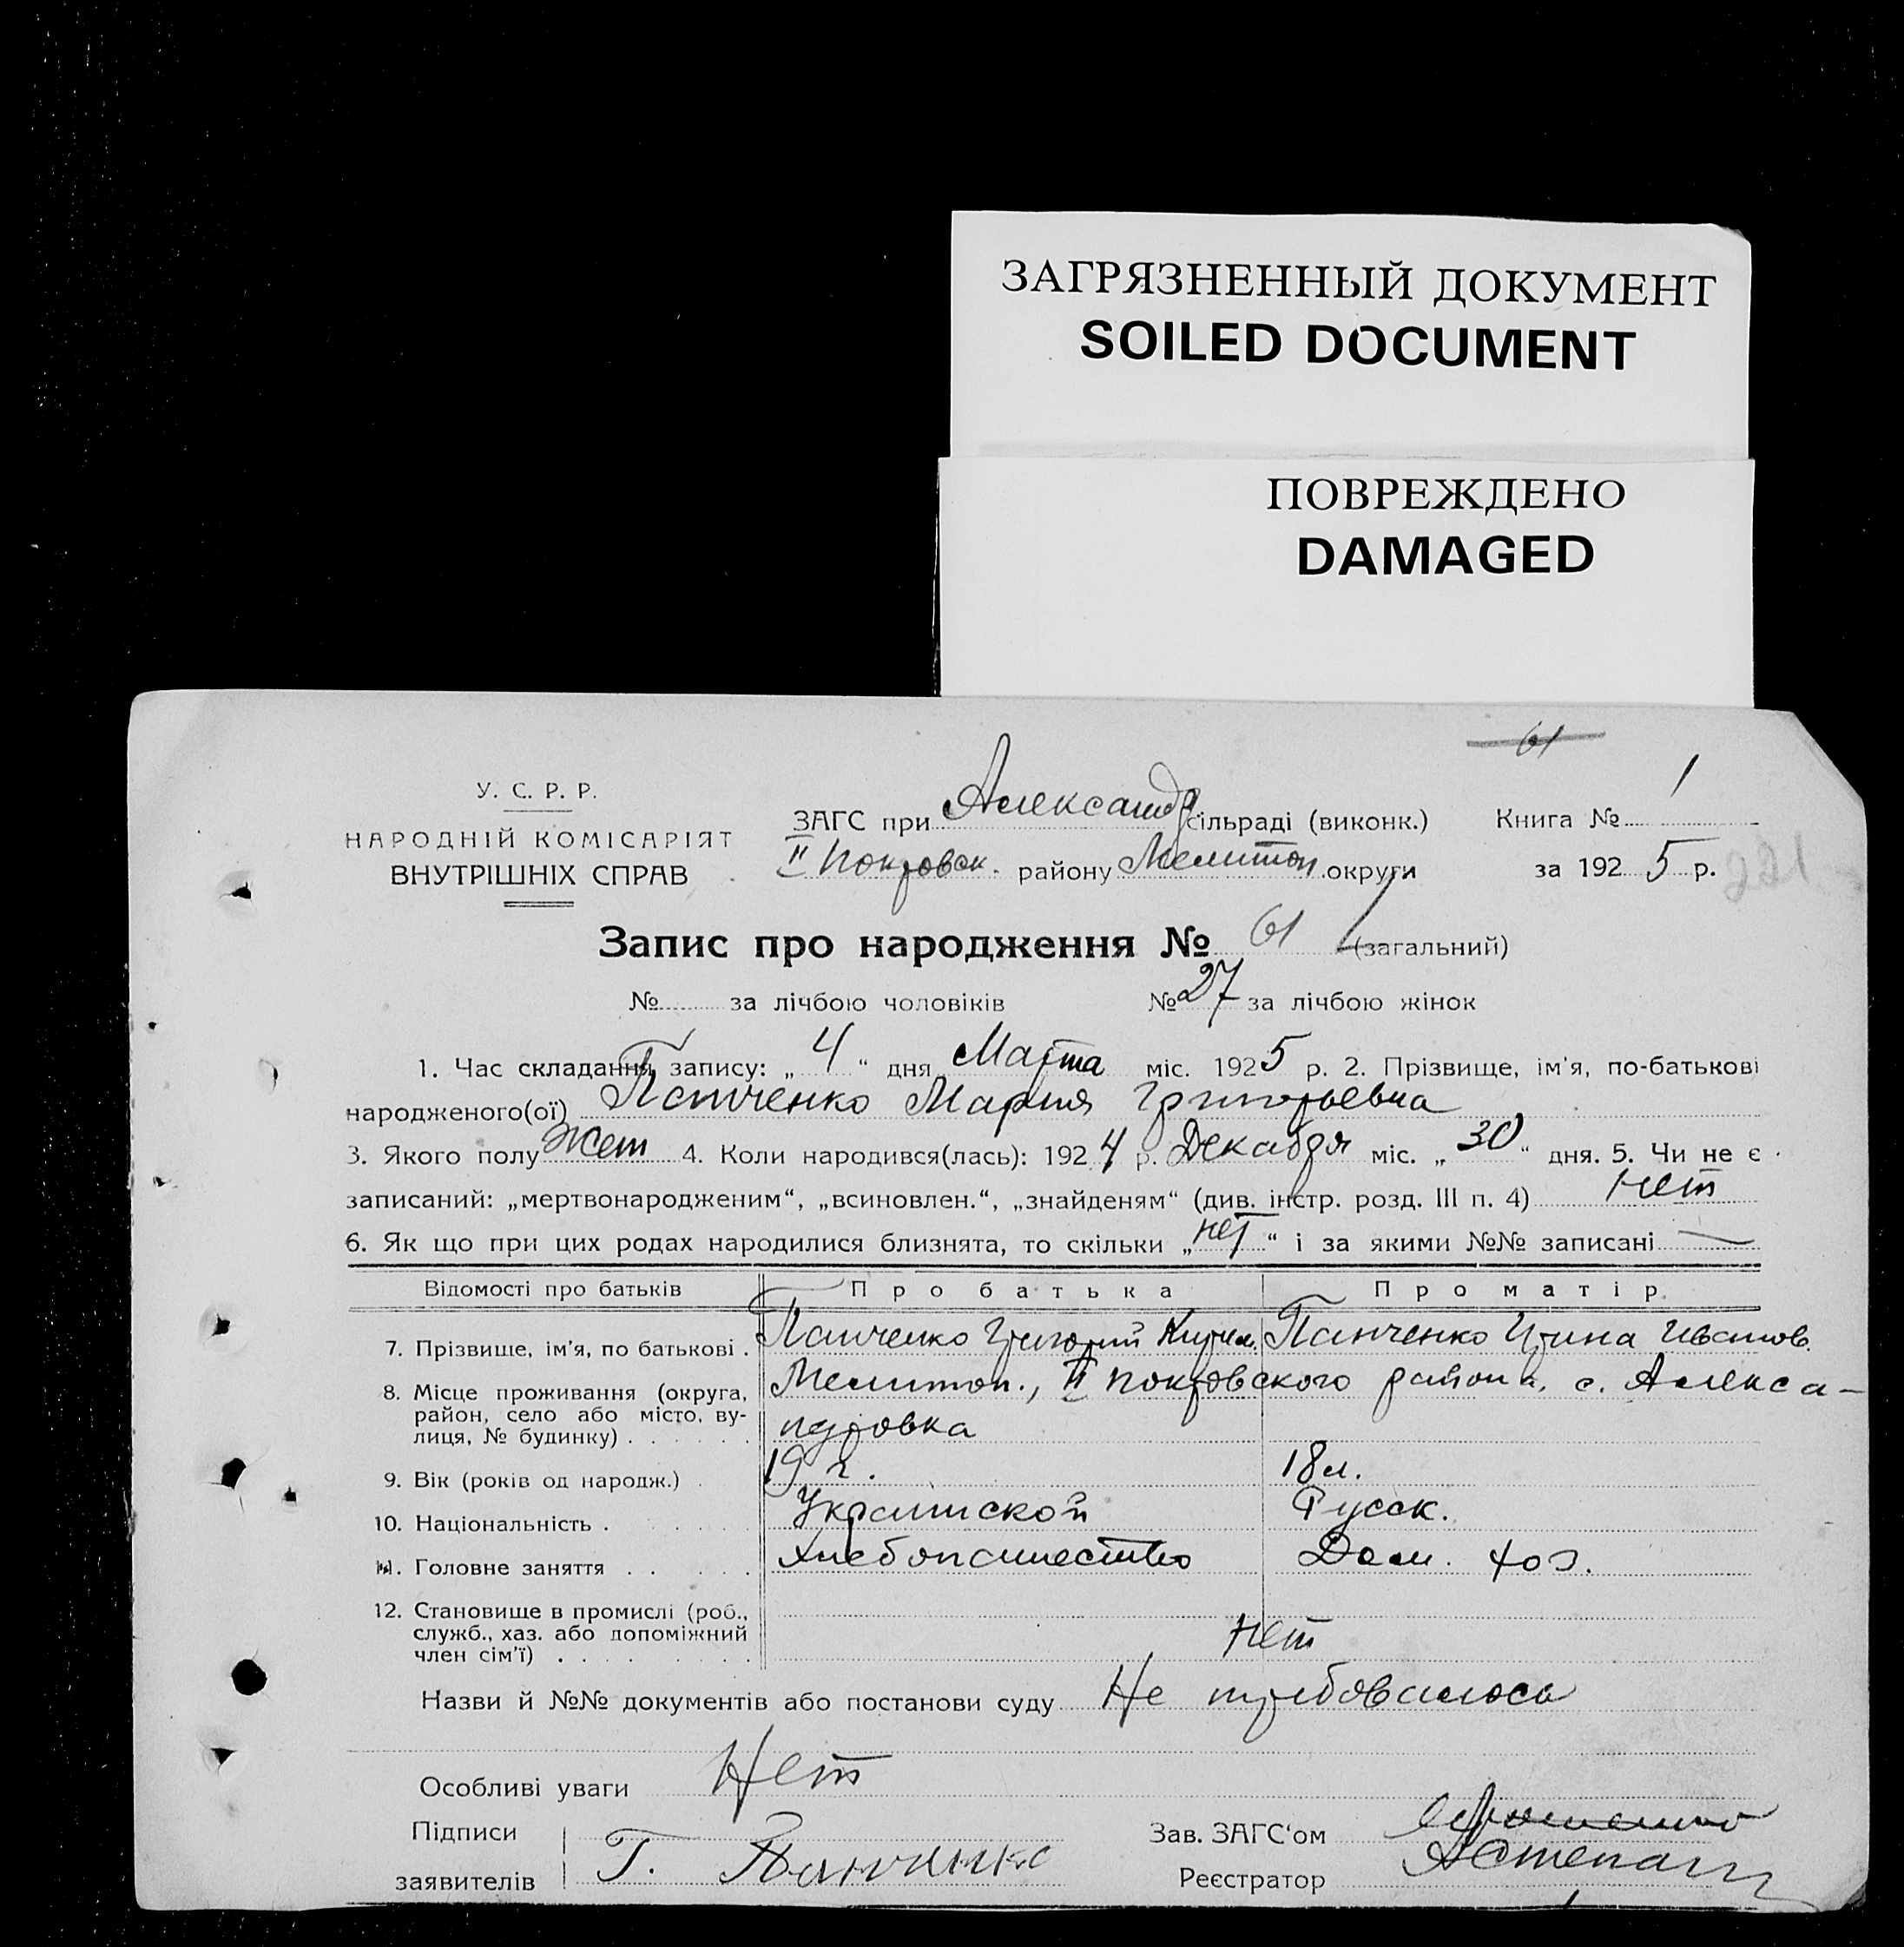 ЗАГРЯЗНЕННЫЙ ДОКУМЕНТ
SOILED DOCUMENT
ПОВРЕЖДЕНО
DAMAGED
61
У. С. Р. Р.
НАРОДНІЙ КОМІСАРІЯТ
ВНУТРІШНІХ СПРАВ
ЗАГС при Александр сільраді (виконк.) Книга № 1
II Покровск. району Мелитоп округи за 1925 р. 221
Запис про народження № 61 (загальний)
№ за лічбою чоловіків № 27 за лічбою жінок
1. Час складання запису: „ 4 “ дня Марта міс. 1925 р. 2. Прізвище, ім'я, по-батькові
народженого(ої) Панченко Мария Григорьевна
3. Якого полу жен 4. Коли народився(лась): 1924 р. Декабря міс. „ 30 “ дня. 5. Чи не є
записаний: „мертвонародженим“, „всиновлен.“, „знайденям“ (див. інстр. розд. III п. 4) нет
6. Як що при цих родах народилися близнята, то скільки „ нет “ і за якими №№ записані —
Відомості про батьків Про батька Про матір
7. Прізвище, ім'я, по батькові . Панченко Григорий Кирил. Панченко Ирина Иванов.
8. Місце проживання (округа, Мелитоп., II Покровского района, с. Алекса-
район, село або місто, ву-
лиця, № будинку) . . . . . . ндровка
9. Вік (років од народж.) . 19 л. 18 л.
10. Національність . . . . . Украинской Русск.
11. Головне заняття . . . . . Хлебопашество Дом. хоз.
12. Становище в промислі (роб.,
служб., хаз. або допоміжний нет
член сім'ї) . . . . . . . .
Назви й №№ документів або постанови суду Не требовалось
Особливі уваги Нет
Підписи Зав. ЗАГС'ом
заявителів Г. Панченко Реєстратор